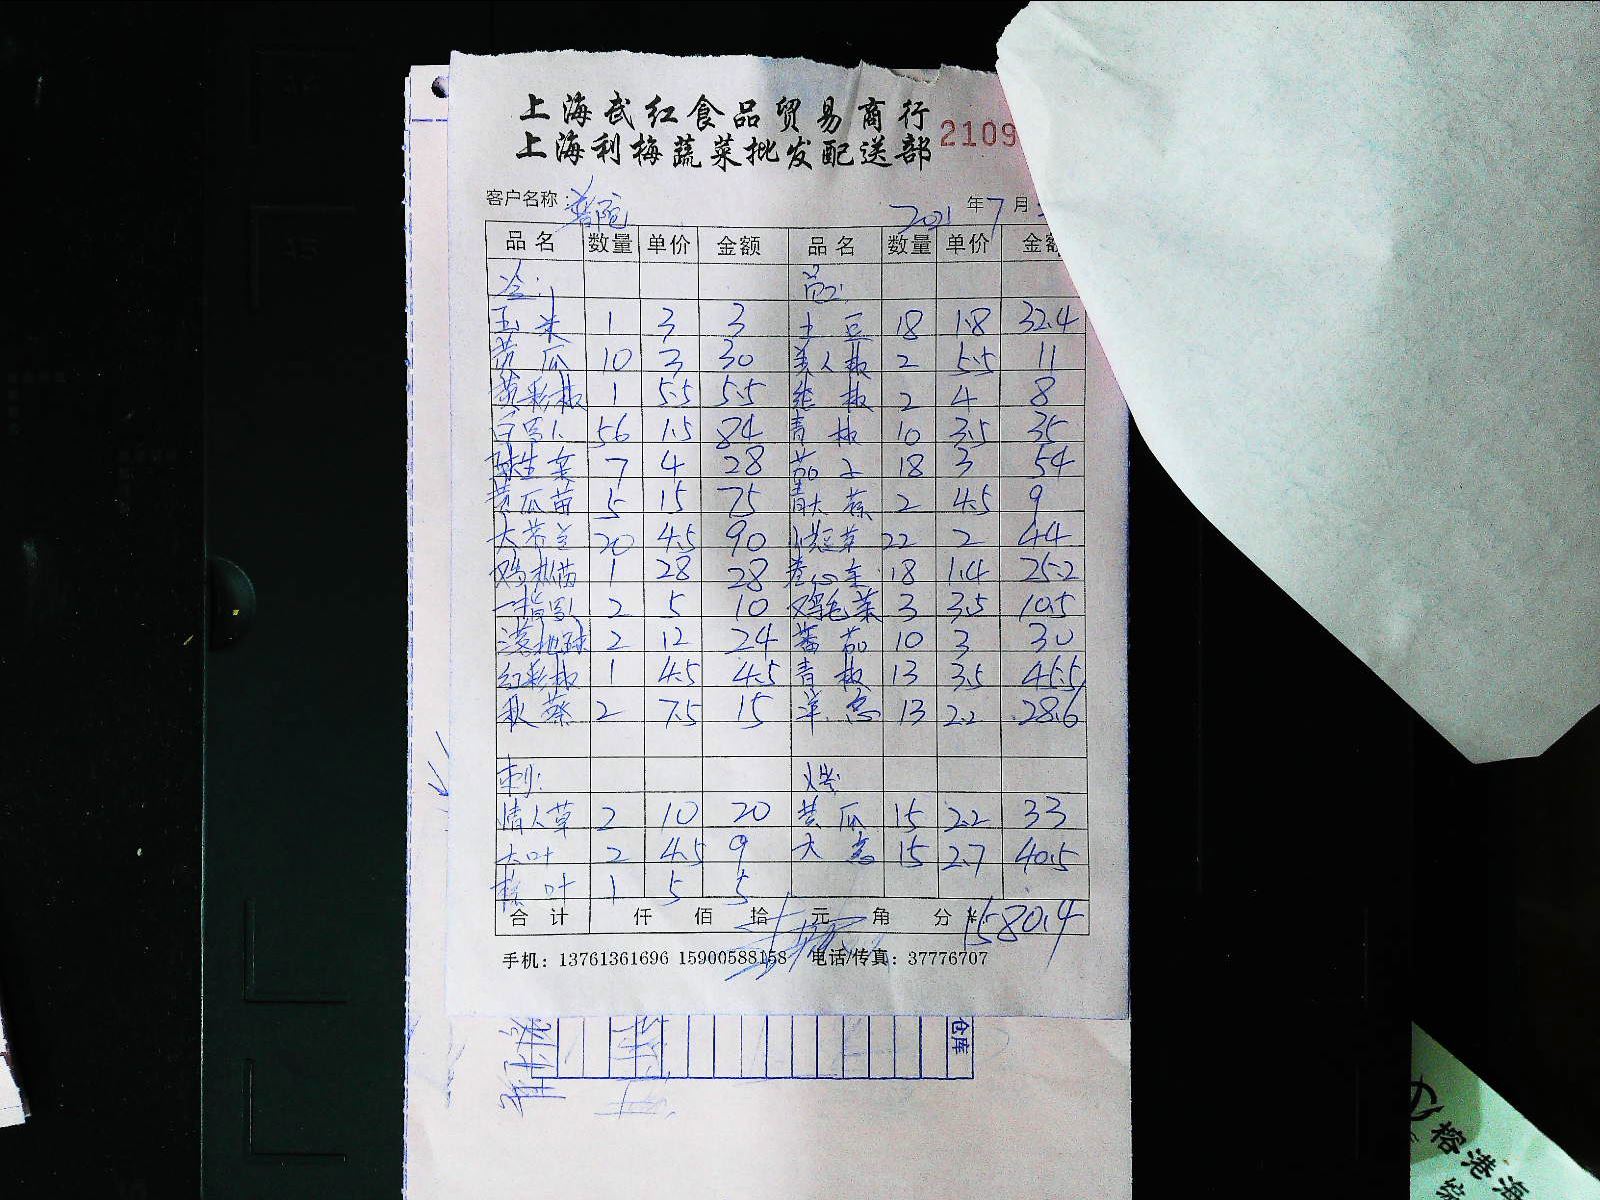 上海武红食品贸易商行
上海利梅蔬菜批发配送部 2109
客户名称: 普陀 2021 年 7 月
品名 数量 单价 金额 品名 数量 单价 金额
冷:
玉米 1 3 3 土豆 18 1.8 32.4
黄瓜 10 3 30 美人椒 2 5.5 11
黄彩椒 1 5.5 5.5 椒 2 4 8
56 1.5 84 青椒 10 3.5 35
球生菜 7 4 28 茄子 18 3 54
黄瓜苗 5 15 75 青大蒜 2 4.5 9
大芥兰 20 4.5 90 22 2 44
鸡枞菌 1 28 28 卷心菜 18 1.4 25.2
2 5 10 鸡毛菜 3 3.5 10.5
落地球 2 12 24 蕃茄 10 3 30
红彩椒 1 4.5 4.5 青椒 13 3.5 45.5
秋葵 2 7.5 15 洋葱 13 2.2 28.6
刺: 烧
情人草 2 10 20 黄瓜 15 2.2 33
大叶 2 4.5 9 大葱 15 2.7 40.5
叶 1 5 5
合计 仟 佰 拾 元 角 分 ¥1580.4
手机: 13761361696 15900588158 电话/传真: 37776707
仓库
榕港海